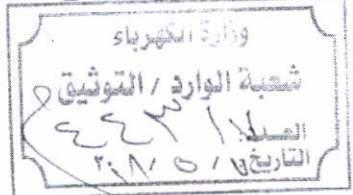 وزارة الكهرباء
شعبة الوارد / التوثيق
العدد
التاريخ / ٥ / ٢٠١٨